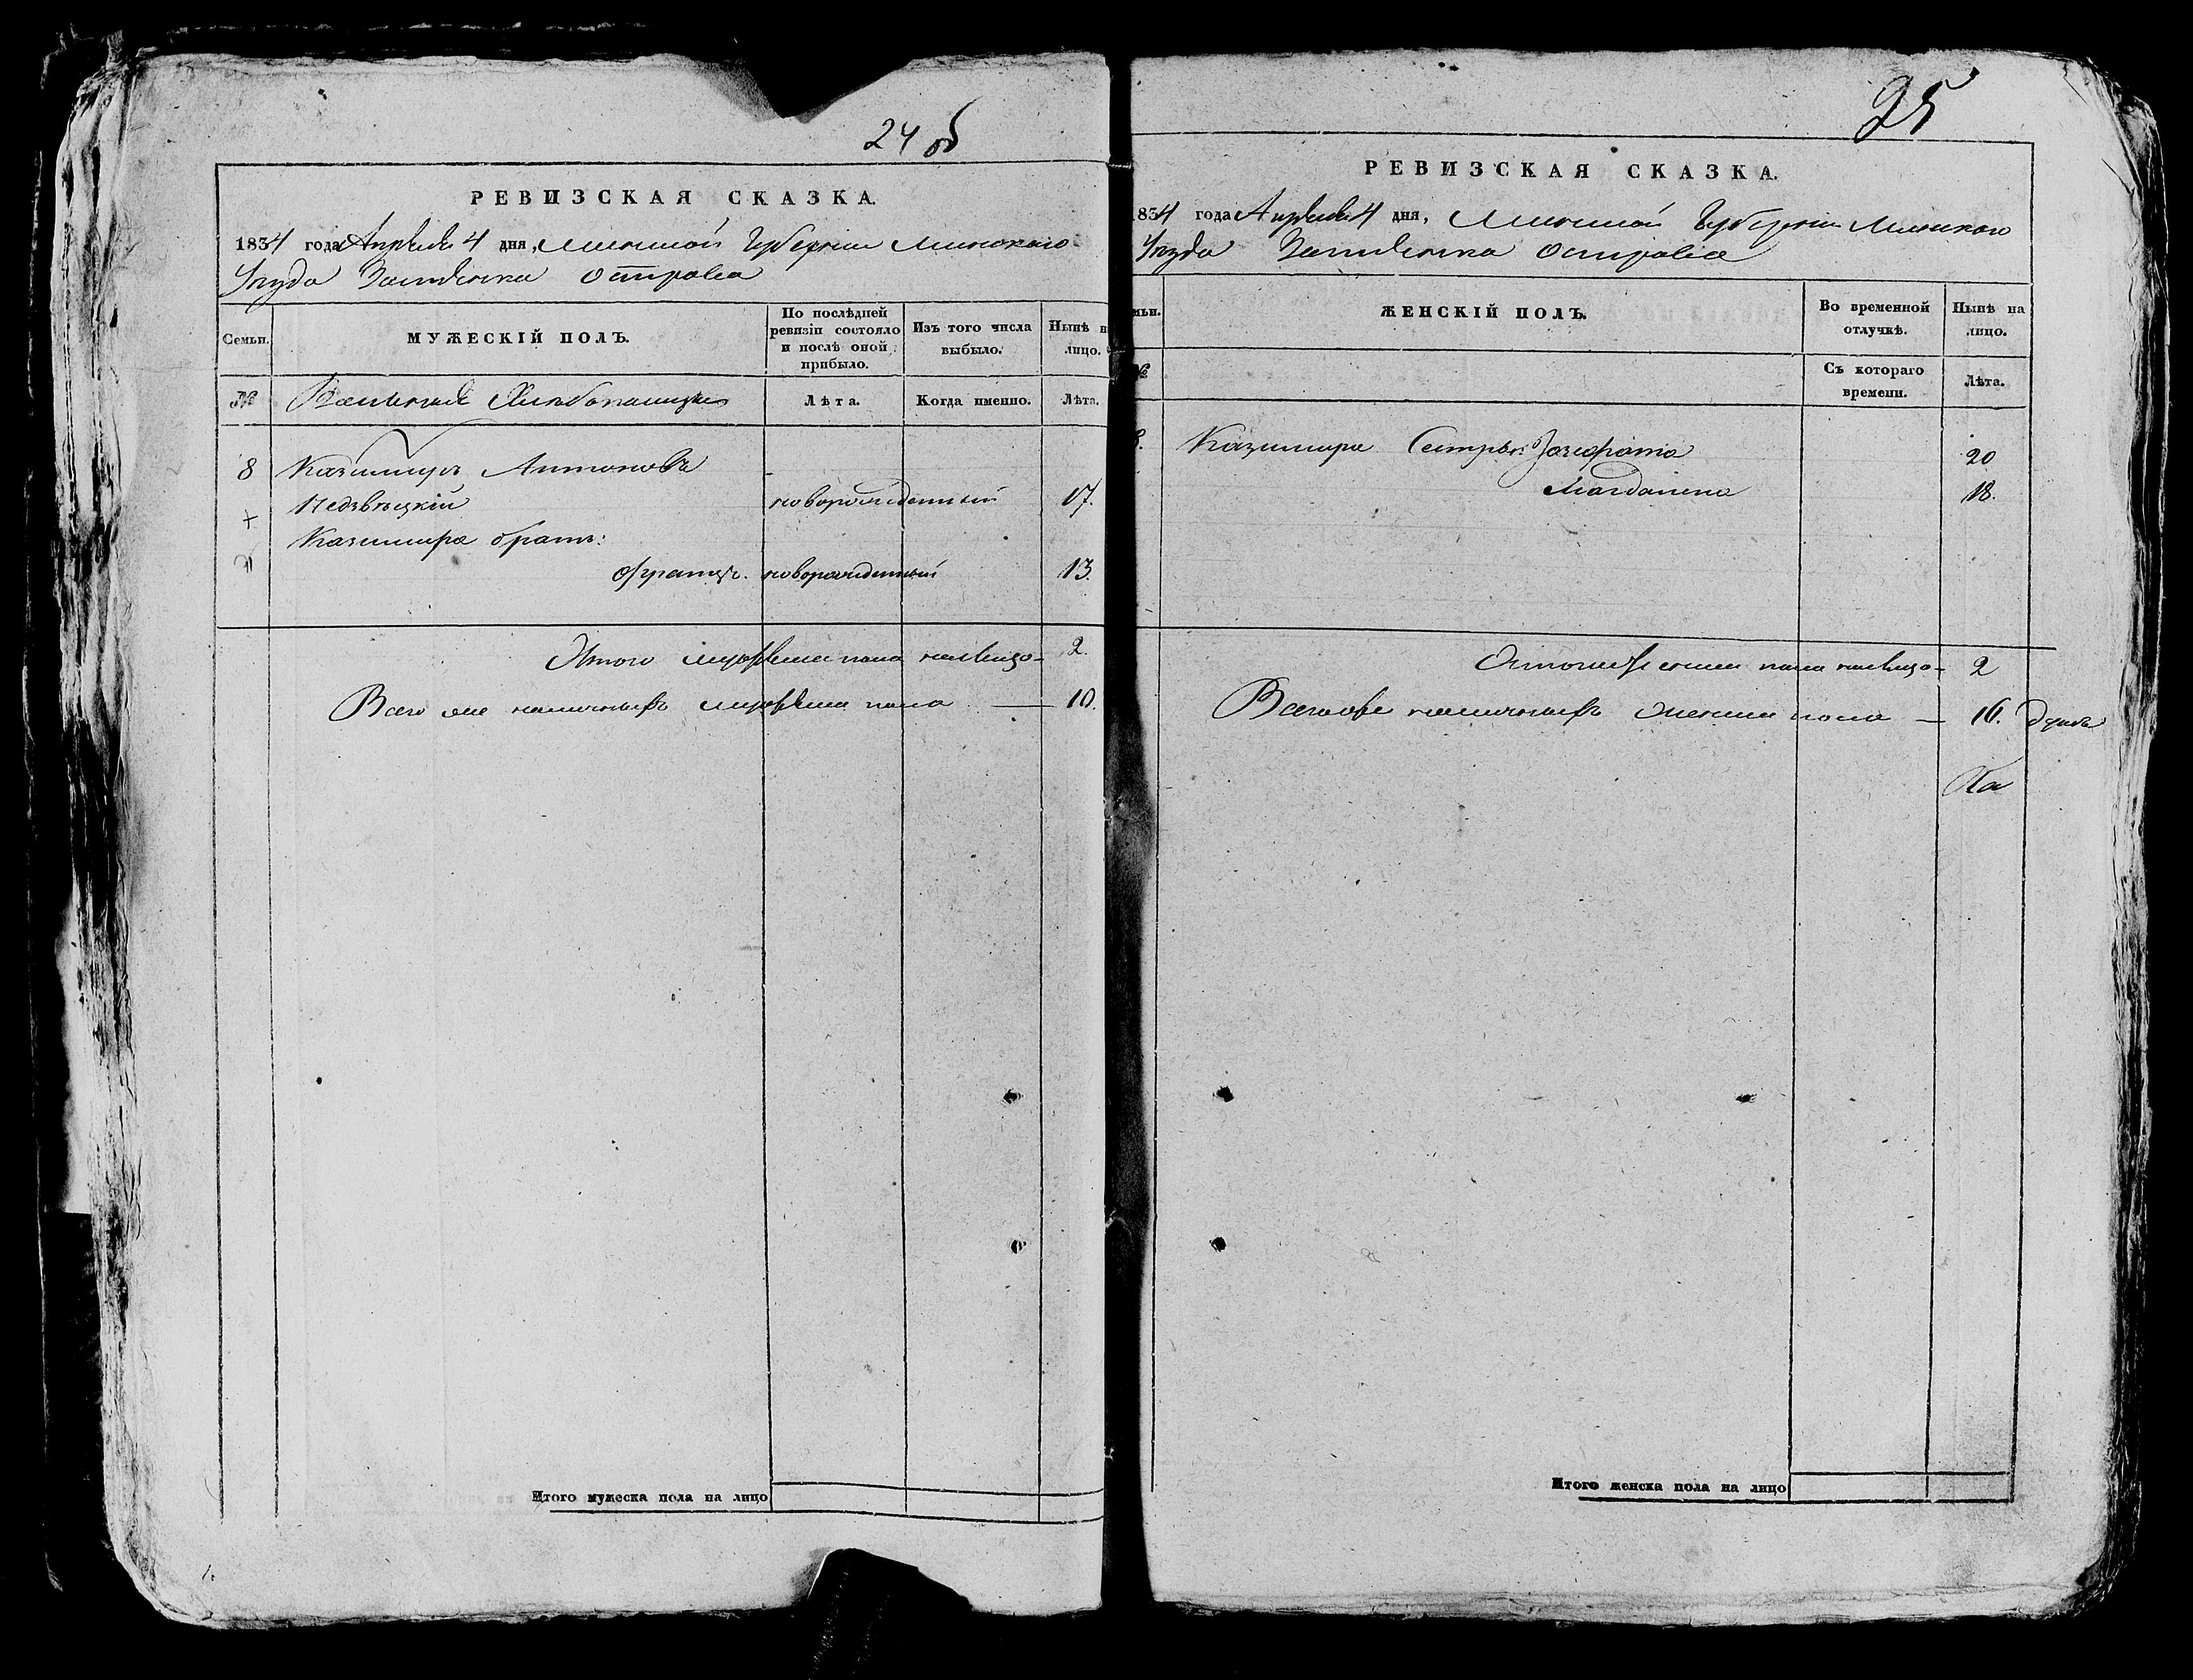 24 об
РЕВИЗСКАЯ СКАЗКА.
1834 года Апреля 4 дня, Минской Губернии Минского
Уезда Застенка Острова
Семьи.
МУЖЕСКІЙ ПОЛЪ.
По послѣдней ревизіи состояло и послѣ оной прибыло.
Изъ того числа выбыло.
Нынѣ на лицо.
№
Вольные Хлебопашцы
Лѣта.
Когда именно.
Лѣта.
8 Казимиръ Антоновъ
Недзвецкій новорожденный 17.
Казимира братъ:
Францъ. новорожденный 13.
Итого мужеска пола налицо - 2.
Всего же наличныхъ мужеска пола — 10.
Итого мужеска пола на лицо
25
РЕВИЗСКАЯ СКАЗКА.
1834 года Апреля 4 дня, Минской Губернии Минского
Уезда Застенка Острова
ЖЕНСКІЙ ПОЛЪ.
Во временной отлучкѣ.
Нынѣ на лицо.
№
Съ котораго времени.
Лѣта.
8. Казимира Сестры: Іозефата 20
Магдалена 18.
Итого женска пола налицо - 2
Всего же наличныхъ женска пола — 16. душъ
Итого женска пола на лицо